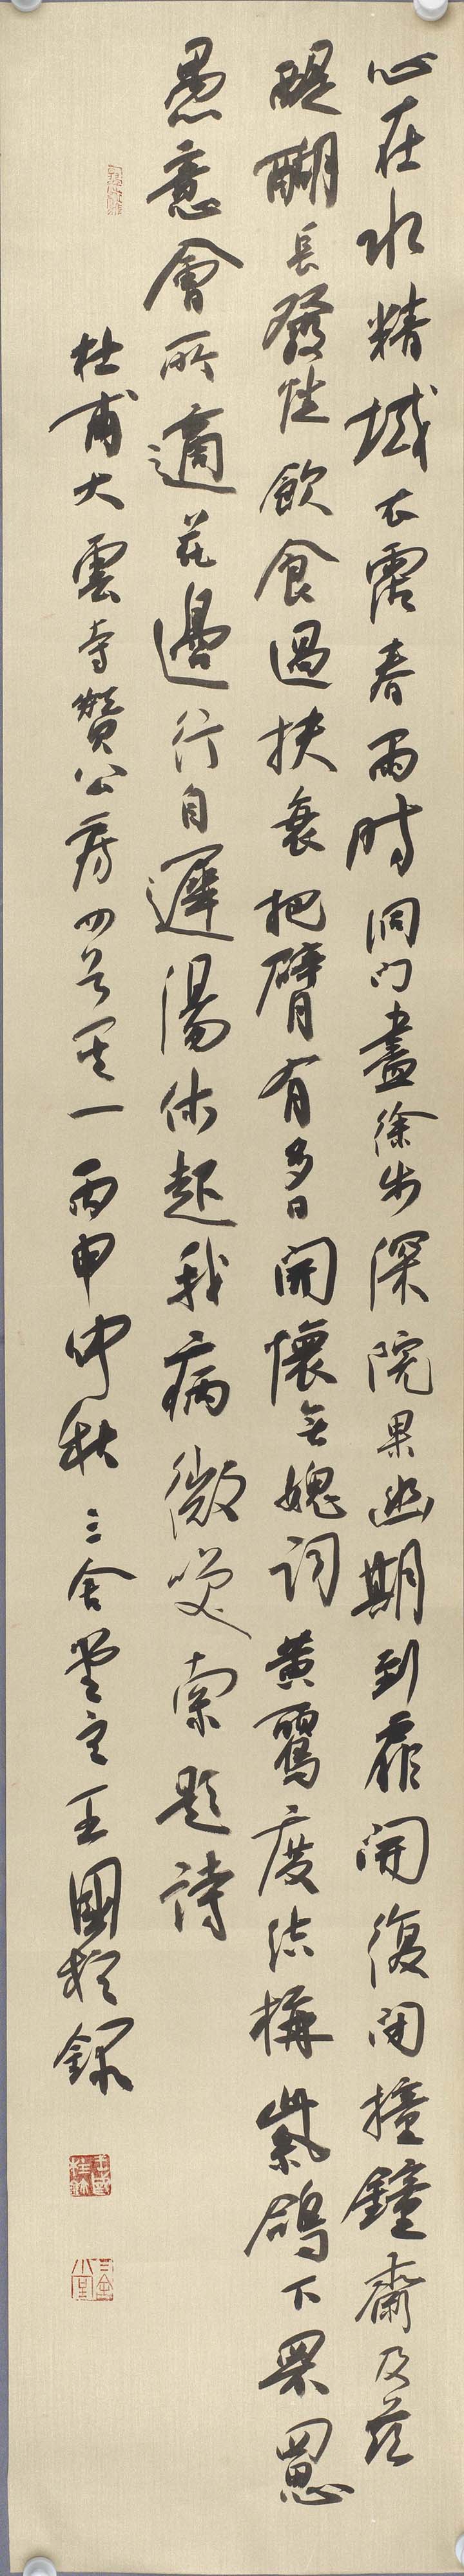 心在水精域衣霑春雨時洞門盡徐步深院果幽期到扉開復閉撞鐘齋及茲
醍醐長發性飲食過扶衰把臂有多日開懷無愧詞黃鸝度結構紫鴿下罘罳
愚意會所適花邊行自遲湯休起我病微笑索題詩
杜甫大雲寺贊公房四首其一 丙申中秋 三舍堂主王國柱錄